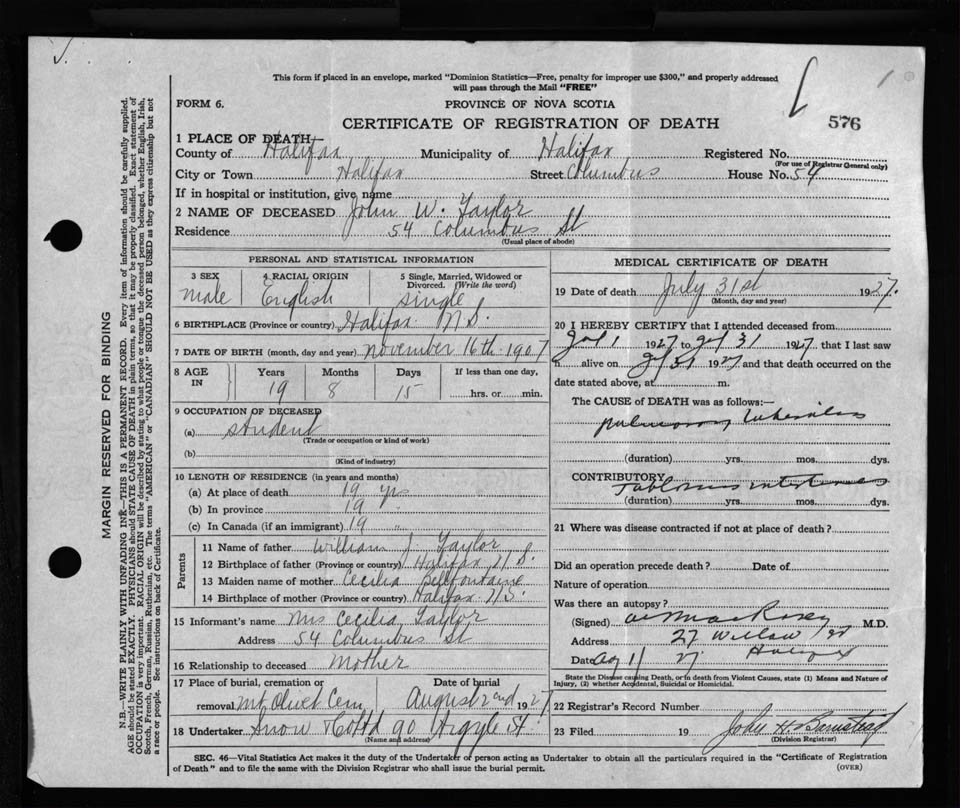 This form if placed in an envelope, marked "Dominion Statistics—Free, penalty for improper use $300," and properly addressed
will pass through the Mail "FREE"
FORM 6.
PROVINCE OF NOVA SCOTIA
CERTIFICATE OF REGISTRATION OF DEATH
576
1 PLACE OF DEATH—
County of Halifax Municipality of Halifax Registered No.
(For use of Registrar General only)
City or Town Halifax Street Columbus House No. 54
If in hospital or institution, give name
2 NAME OF DECEASED John W. Taylor
Residence 54 Columbus St
(Usual place of abode)
PERSONAL AND STATISTICAL INFORMATION
3 SEX 4 RACIAL ORIGIN 5 Single, Married, Widowed or
Divorced. (Write the word)
male English single
6 BIRTHPLACE (Province or country) Halifax N.S.
7 DATE OF BIRTH (month, day and year) November 16th 1907
8 AGE Years Months Days If less than one day,
IN 19 8 15 hrs. or min.
9 OCCUPATION OF DECEASED
(a) student
(Trade or occupation or kind of work)
(b)
(Kind of industry)
10 LENGTH OF RESIDENCE (in years and months)
(a) At place of death 19 yrs
(b) In province 19 "
(c) In Canada (if an immigrant) 19 "
Parents
11 Name of father William J. Taylor
12 Birthplace of father (Province or country) Halifax N.S.
13 Maiden name of mother Cecilia Bellfontaine
14 Birthplace of mother (Province or country) Halifax N.S.
15 Informant's name Mrs Cecilia Taylor
Address 54 Columbus St
16 Relationship to deceased Mother
17 Place of burial, cremation or Date of burial
removal Mt Olivet Cem August 2nd 1927
18 Undertaker Snow & Co Ltd 90 Argyle St.
(Name and address)
MEDICAL CERTIFICATE OF DEATH
19 Date of death July 31st 1927.
(Month, day and year)
20 I HEREBY CERTIFY that I attended deceased from
1 1927 to 31 1927 that I last saw
h alive on 31 1927 and that death occurred on the
date stated above, at m.
The CAUSE of DEATH was as follows:—
pulmonary tuberculosis
(duration) yrs. mos. dys.
CONTRIBUTORY
(duration) yrs. mos. dys.
21 Where was disease contracted if not at place of death?
Did an operation precede death? Date of
Nature of operation
Was there an autopsy?
(Signed) M.D.
Address 27 Willow St
Date Aug 1 27 Halifax
State the Disease causing Death, or in death from Violent Causes, state (1) Means and Nature of
Injury, (2) whether Accidental, Suicidal or Homicidal.
22 Registrar's Record Number
23 Filed 19 John H. Barnstead
(Division Registrar)
SEC. 46—Vital Statistics Act makes it the duty of the Undertaker or person acting as Undertaker to obtain all the particulars required in the "Certificate of Registration
of Death" and to file the same with the Division Registrar who shall issue the burial permit. (OVER)
MARGIN RESERVED FOR BINDING
N.B.—WRITE PLAINLY WITH UNFADING INK—THIS IS A PERMANENT RECORD. Every item of information should be carefully supplied.
AGE should be stated EXACTLY. PHYSICIANS should STATE CAUSE OF DEATH in plain terms, so that it may be properly classified. Exact statement of
OCCUPATION is very important. RACIAL ORIGIN will be described by stating to what people or tongue the deceased person belonged, whether English, Irish,
Scotch, French, German, Russian, Ruthenian, etc. The terms "AMERICAN" or "CANADIAN" SHOULD NOT BE USED as they express citizenship but not
a race or people. See instructions on back of Certificate.